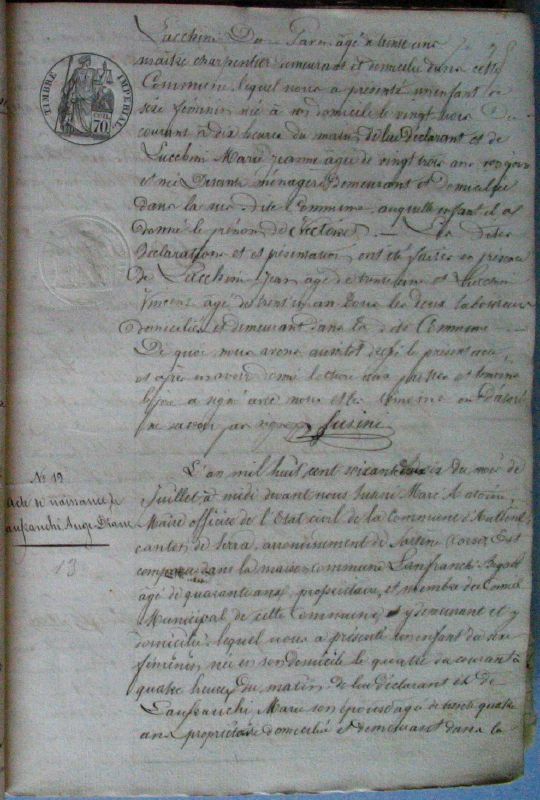 TIMBRE IMPERIAL
70
maître charpentier demeurant et domicilié dans cette
Commune lequel nous a présenté un enfant de
sexe féminin née à son domicile le vingt trois du
courant à dix heures du matin de lui déclarant et de
Lucchini Marie Jeanne âgée de vingt trois ans
ménagère demeurant et domiciliée
dans la sus dite Commune auquel enfant il a
donné le prénom de Les dites
déclarations et présentation ont été faites en présence
de Lucchini Jean âgé de trente ans et Lucchini
Vincent âgé de trente un an tous les deux laboureurs
domiciliés et demeurant dans la dite Commune
De quoi nous avons aussitôt dressé le présent acte
et après en avoir donné lecture aux parties et témoins
le père a signé avec nous et les témoins ont déclaré
ne savoir pas signer Susini
N° 12
Acte de naissance de
Lanfranchi Ange Diane
13
L'an mil huit cent soixante six du mois de
Juillet à midi devant nous Susini Marc
Maire officier de l'Etat civil de la Commune d'Aullène
canton de Serra, arrondissement de Sartène (Corse) Est
comparu dans la maison commune Lanfranchi
âgé de quarante ans, propriétaire, et membre du Conseil
Municipal de cette Commune y demeurant et y
domicilié lequel nous a présenté un enfant du sexe
féminin, née en son domicile le quatre du courant à
quatre heures du matin de lui déclarant et de
Lanfranchi Marie son épouse âgée de trente quatre
ans propriétaire domiciliée et demeurant dans la